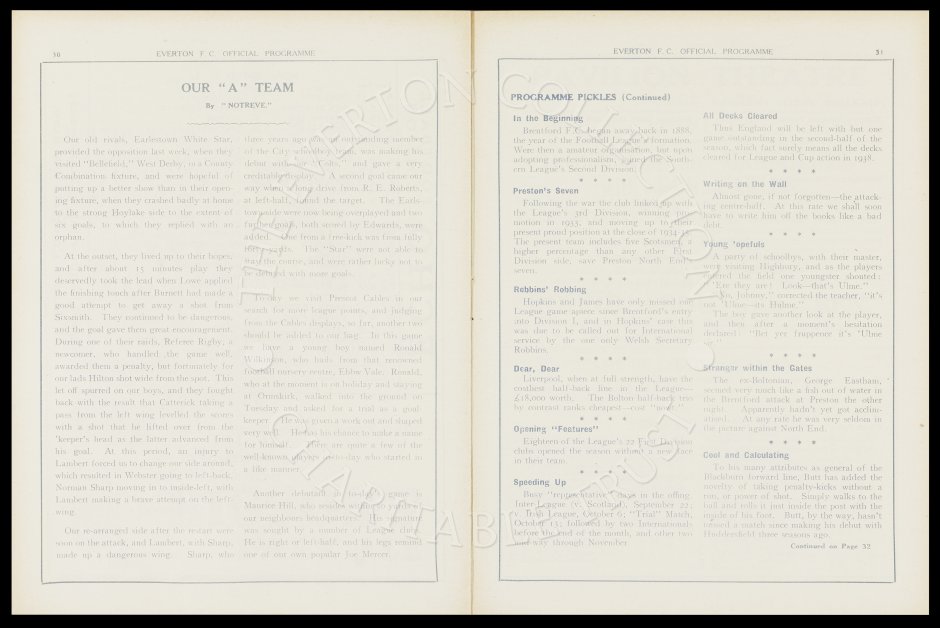 30
EVERTON F. C. OFFICIAL PROGRAMME
OUR "A" TEAM
By "NOTREVE."
Our old rivals, Earlestown White Star,
provided the opposition last week, when they
visited "Bellefield," West Derby, in a County
Combination fixture, and were hopeful of
putting up a better show than in their open-
ing fixture, when they crashed badly at home
to the strong Hoylake side to the extent of
six goals, to which they replied with an
orphan.
At the outset, they lived up to their hopes,
and after about 15 minutes play they
deservedly took the lead when Lowe applied
the finishing touch after Burnett had made a
good attempt to get away a shot from
Sixsmith. They continued to be dangerous,
and the goal gave them great encouragement.
During one of their raids, Referee Rigby, a
newcomer, who handled the game well,
awarded them a penalty, but fortunately for
our lads Hilton shot wide from the spot. This
let off spurred on our boys, and they fought
back with the result that Catterick taking a
pass from the left wing levelled the scores
with a shot that he lifted over from the
'keeper's head as the latter advanced from
his goal. At this period, an injury to
Lambert forced us to change our side around,
which resulted in Webster going to left-back,
Norman Sharp moving in to inside-left, with
Lambert making a brave attempt on the left-
wing.
Our re-arranged side after the restart were
soon on the attack, and Lambert, with Sharp,
made up a dangerous wing. Sharp, who
three years ago was an outstanding member
of the City schoolboy team, was making his
debut with our "Colts," and gave a very
creditable display. A second goal came our
way when a long drive from R. E. Roberts,
at left-half, found the target. The Earls-
town side were now being overplayed and two
further goals, both scored by Edwards, were
added. One from a free-kick was from fully
forty yards. The "Star" were not able to
stay the course, and were rather lucky not to
be debited with more goals.
To-day we visit Prescot Cables in our
search for more league points, and judging
from the Cables displays, so far, another two
should be added to our bag. In this game
we have a young boy named Ronald
Wilkinson, who hails from that renowned
football nursery centre, Ebbw Vale. Ronald,
who at the moment is on holiday and staying
at Ormskirk, walked into the ground on
Tuesday and asked for a trial as a goal-
keeper. He was given a work out and shaped
very well. He has his chance to make a name
for himself. There are quite a few of the
well-known players of to-day who started in
a like manner.
Another debutant in to-day's game is
Maurice Hill, who resides within 50 yards of
our neighbours headquarters. His signature
was sought by a number of League clubs.
He is right or left-half, and his legs remind
one of our own popular Joe Mercer.
EVERTON F. C. OFFICIAL PROGRAMME
31
PROGRAMME PICKLES (Continued)
In the Beginning
Brentford F.C. began away back in 1888,
the year of the Football League's formation.
Were then a amateur organisation, but upon
adopting professionalism, joined the South-
ern League's Second Division.
* * * *
Preston's Seven
Following the war the club linked up with
the League's 3rd Division, winning pro-
motion in 1933, and moving up to their
present proud position at the close of 1934-35.
The present team includes five Scotsmen, a
higher percentage than any other First
Division side, save Preston North End's
seven.
* * * *
Robbins' Robbing
Hopkins and James have only missed one
League game apiece since Brentford's entry
into Division I, and in Hopkins' case this
was due to being called out for International
service by the one only Welsh Secretary
Robbins.
* * * *
Dear, Dear
Liverpool, when at full strength, have the
costliest half-back line in the League—
£18,000 worth. The Bolton half-back trio
by contrast ranks cheapest—cost "nout."
* * * *
Opening "Features"
Eighteen of the League's 22 First Division
clubs opened the season without a new face
in their team.
* * * *
Speeding Up
Busy "representative" days in the offing.
Inter-League (v. Scotland), September 22;
v. Irish League, October 6; "Trial" Match,
October 13; followed by two Internationals
before the end of the month, and other two
mid-way through November
All Decks Cleared
Thus England will be left with but one
game outstanding in the second-half of the
season, which fact surely means all the decks
cleared for League and Cup action in 1938.
* * * *
Writing on the Wall
Almost gone, if not forgotten—the attack-
ing centre-half. At this rate we shall soon
have to write him off the books like a bad
debt.
* * * *
Young 'opefuls
A party of schoolboys, with their master,
were visiting Highbury, and as the players
entered the field one youngster shouted:
"Ere they are! Look—that's Ulme."
"No, Johnny," corrected the teacher, "it's
not 'Ulme—its Hulme."
The boy gave another look at the player,
and then after a moment's hesitation
declared: "Bet yer fruppence it's 'Ulme
sir."
* * * *
Stranger within the Gates
The ex-Boltonian, George Eastham,
seemed very much like a fish out of water in
the Brentford attack at Preston the other
night. Apparently hadn't yet got acclim-
At any rate he was very seldom in
the picture against North End.
* * * *
Cool and Calculating
To his many attributes as general of the
Blackburn forward line, Butt has added the
novelty of taking penalty-kicks without a
run, or power of shot. Simply walks to the
ball and rolls it just inside the post with the
inside of his foot. Butt, by the way, hasn't
missed a match since making his debut with
Huddersfield three seasons ago.
Continued on Page 32
THE EVERTON COLLECTION
CHARITABLE TRUST